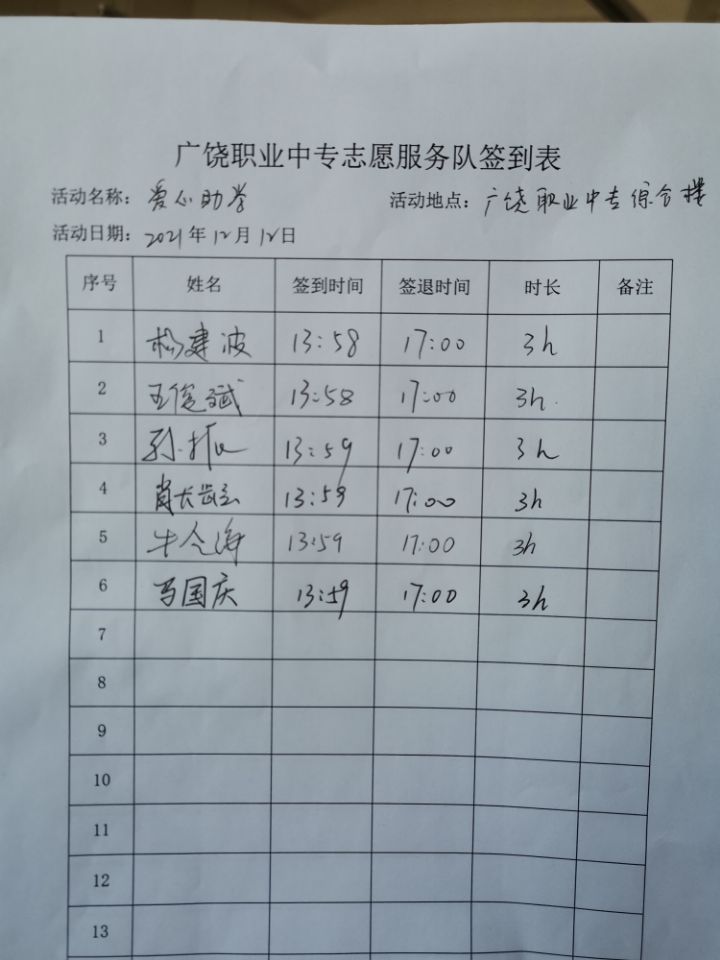 广饶职业中专志愿服务队签到表
活动名称：爱心助学 活动地点：广饶职业中专综合楼
活动日期：2021年12月12日
序号 姓名 签到时间 签退时间 时长 备注
1 杨建波 13:58 17:00 3h
2 王俊斌 13:58 17:00 3h
3 孙 13:59 17:00 3h
4 肖 13:59 17:00 3h
5 牛 海 13:59 17:00 3h
6 马国庆 13:59 17:00 3h
7
8
9
10
11
12
13